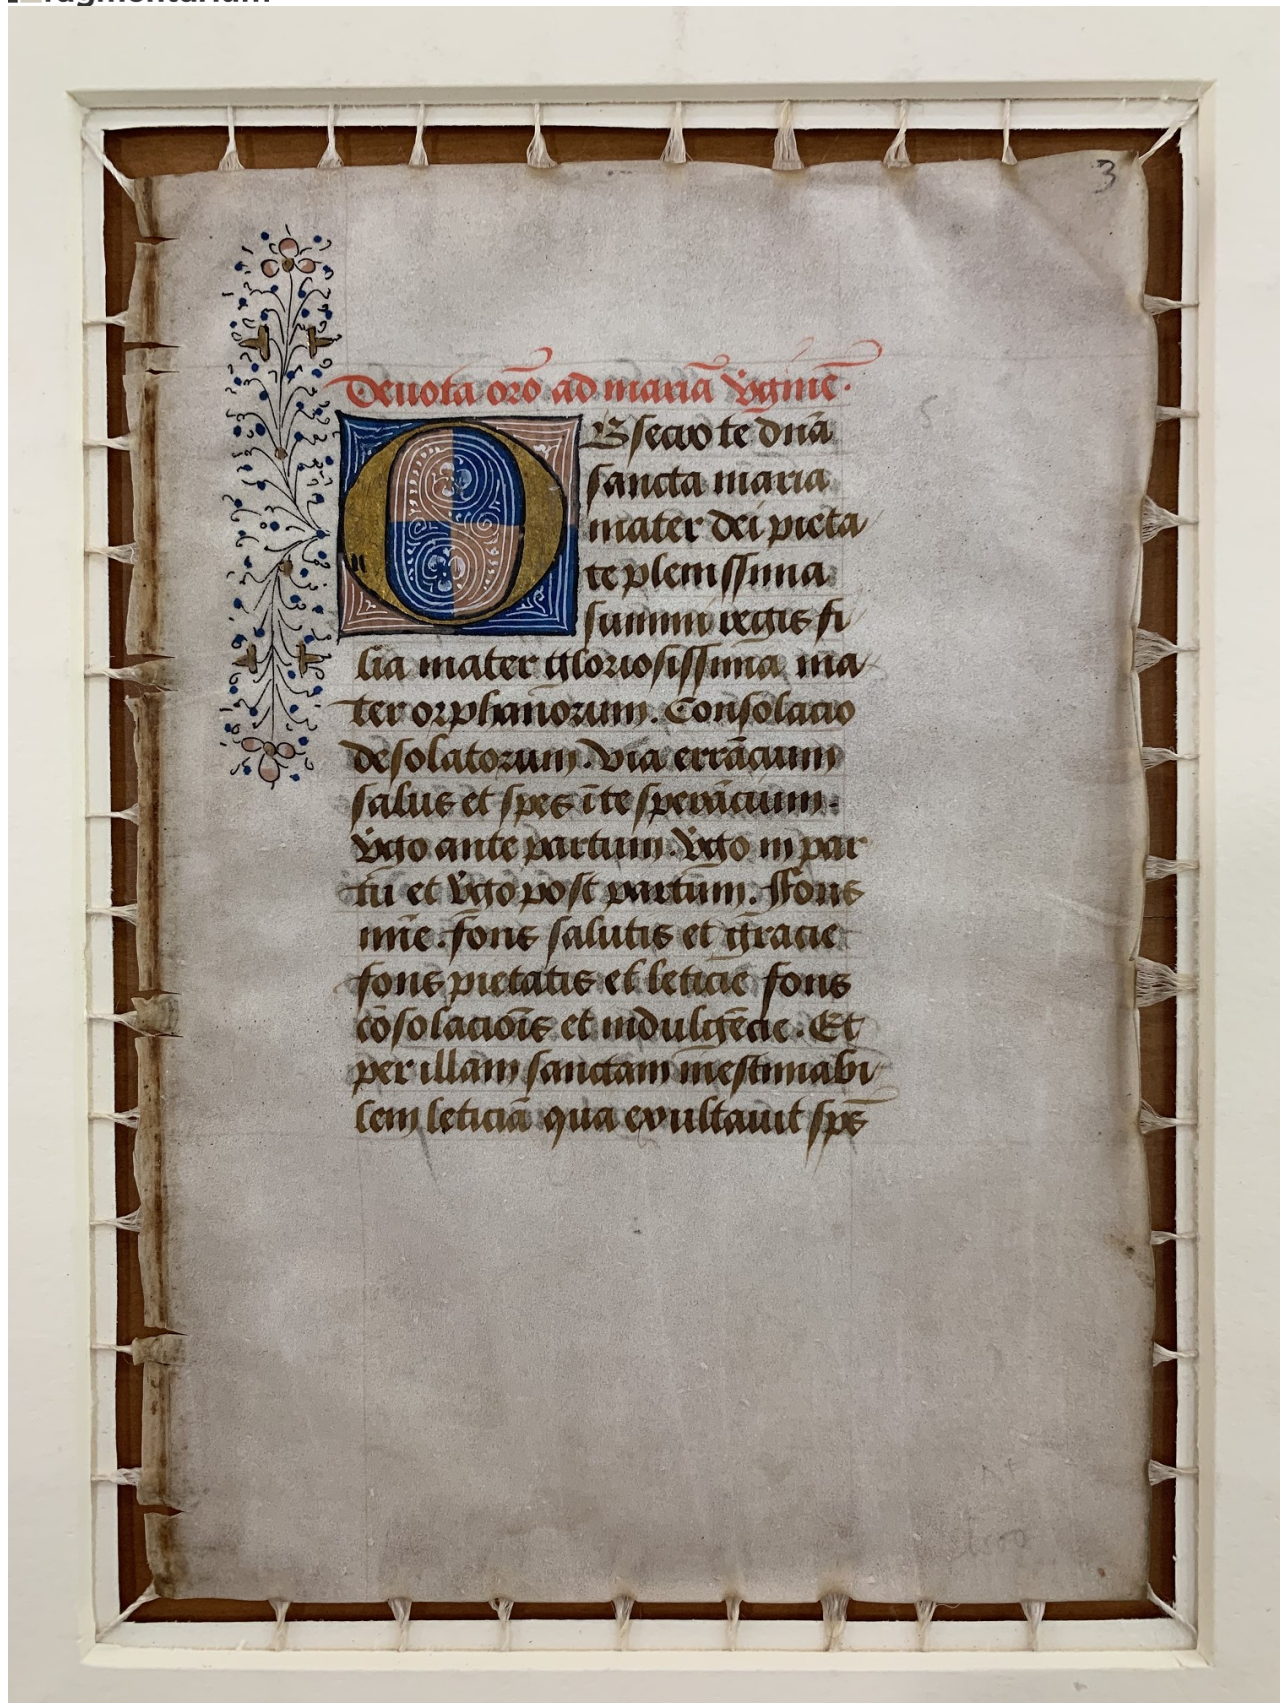 3
Deuota oro ad mariā v̾ginē.
OBsecro te dnā
sancta maria
mater dei pieta
te plenissima
summi regis fi
lia mater gloriosissima ma
ter orphanorum. Consolacio
desolatorum. via errācium
salus et spes ī te sperācium.
v̾go ante partum. v̾go in par
tu et v̾go post partum. ffons
mīe. fons salutis et gracie
fons pietatis et leticie fons
cōsolaciōis et indulgēcie. Et
per illam sanctam inestimabi
lem leticiā qua exultauit sp̄s